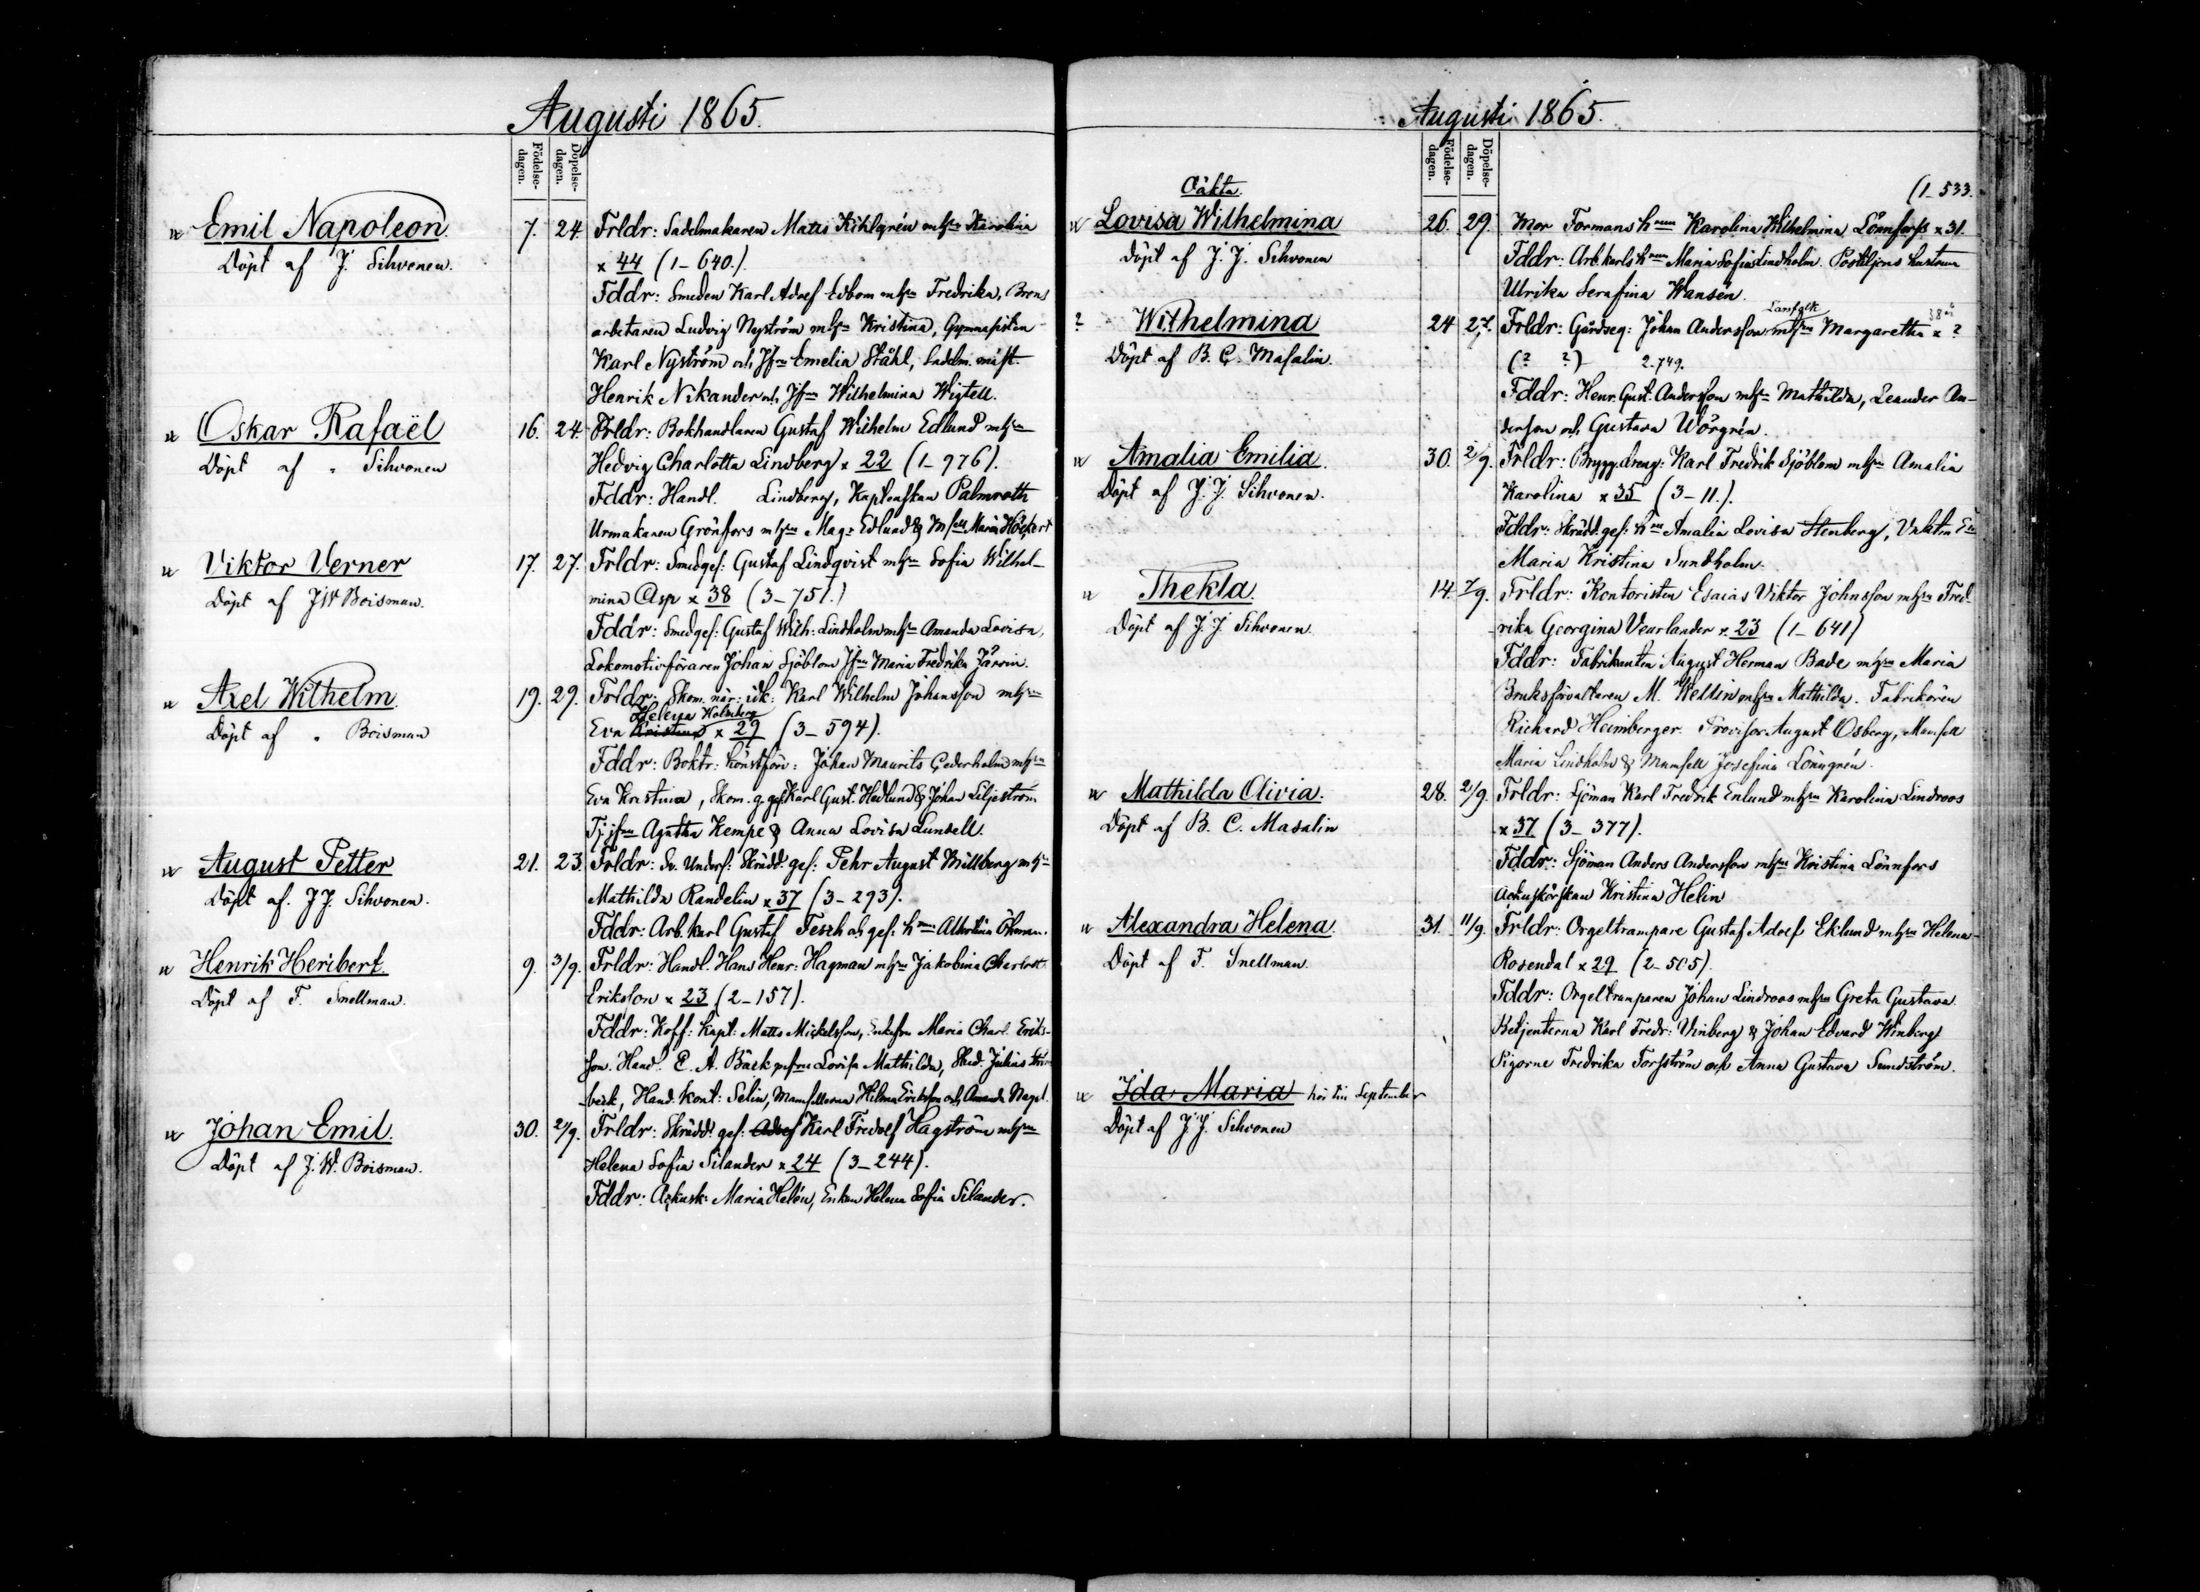 Augusti 1865.
Födelse-dagen. Döpelse-dagen.
Emil Napoleon.
Döpt af J. Sihvonen.
7. 24. Frldr: Sadelmakaren Matts Kihlgrén mhfru Karolina
x 44 (1-640.)
Fddr: Smeden Karl Adolf Edbom mhfru Fredrika,
arbetaren Ludvig Nyström mhfru Kristina, Gymnasisten
Karl Nyström och Jfru Emelia Ståhl, Sadelm. mäst.
Henrik Nikander och Jfru Wilhelmina Wigtell.
Oskar Rafaël
Döpt af " Sihvonen
16. 24. Frldr: Bokhandlaren Gustaf Wilhelm Edlund mhfru
Hedvig Charlotta Lindberg x 22 (1-976).
Fddr: Handl. Lindberg, Kaptenskan Palmroth
Urmakaren Grönfors mhfru Mag: Edlund & Msell Maria Höckert
Viktor Verner
Döpt af J W Boisman.
17. 27. Frldr: Smedges: Gustaf Lindqvist mhfru Sofia Wilhel-
mina Asp x 38 (3-751.)
Fddr: Smedges: Gustaf Wilh: Lindholm mhfru Amanda Lovisa,
Lokomotivföraren Johan Sjöblom Jfru Maria Fredrika Järvin.
Axel Wilhelm
Döpt af " Boisman
19. 29. Forldr: Skom. när: idk: Karl Wilhelm Johansson mhfru
Helena Holmberg
Eva Kristina x 29 (3-594).
Fddr: Boktr: Konstför: Johan Maurits Cederholm mhfru
Eva Kristina, Skom. g. ges. Karl Gust. Hedlund & Johan Liljeström
Tj. jfru Agatha Kempe & Anna Lovisa Lundell.
August Petter
Döpt af. J J. Sihvonen.
21. 23. Forldr: Sv. Unders: Skrädd. ges: Pehr August Millberg mhfru
Mathilda Randelin x 37 (3-293).
Fddr: Arb. karl Gustaf Fesch och ges: hru Albertina Öhman.
Henrik Heribert.
Döpt af F. Snellman.
9. 3/9. Frldr: Handl. Hans Henr: Hagman mhfru Jakobina Charlott
Erikson x 23 (2-157).
Fddr: Koff: Kapt: Matts Mickelsson, Enkefru Maria Charl. Eriks-
son. Handl. C. A. Bäck mhfru Lovisa Mathilda, Stud. Julius
beck, Hand. Kont: Selin, Mamsellerna Hilma Erikson och Amanda
Johan Emil.
Döpt af J. W. Boisman.
30. 2/9. Frldr: Skrädd. ges: Adolf Karl Fredolf Hagström mhfru
Helena Sofia Silander x 24 (3-244).
Fddr: Ackusk: Maria Helén, Enkan Helena Sofia Silander.
Augusti 1865.
Födelse-dagen. Döpelse-dagen.
(1-533.
Oäkta.
Lovisa Wilhelmina
Döpt af J. J. Sihvonen
26. 29. Mor Formans hru Karolina Wilhelmina Lönnfors x 31.
Fddr: Arb. karls hru Maria Sofia Lindholm. Postiljons hustrun
Ulrika Serafina Wansén.
? Wilhelmina
Döpt af B. C. Masalin.
Lantfolk
24 27. Forldr: Gårdseg: Johan Andersson mhfru Margaretha x ?
(? ?) 2.749.
Fddr: Henr. Gust. Andersson mhfru Mathilda, Leander An-
dersson och Gustava Wörgrén.
Amalia Emilia.
Döpt af J. J. Sihvonen.
30. 2/9. Frldr: Brygg.dreng: Karl Fredrik Sjöblom mhfru Amalia
Karolina x 35 (3-11.)
Fddr: Skrädd. ges: hru Amalia Lovisa Stenberg,
Maria Kristina Sundholm.
Thekla.
Döpt af J. J. Sihvonen
14. 7/9. Frldr: Kontoristen Esaias Viktor Johnsson mhfru Fred-
rika Georgina Vearlander x 23 (1-641)
Fddr: Fabrikanten August Herman Bade mhfru Maria
Bruksförvaltaren M. Wellin mhfru Mathilda. Fabrikören
Richard Heimberger. Provisor August Osberg, Mamsell
Maria Lindholm & Mamsell Josefina Lönngrén.
Mathilda Olivia.
Döpt af B. C. Masalin
28. 2/9. Frldr: Sjöman Karl Fredrik Enlund mhfru Karolina Lindroos
x 37 (3-377).
Fddr: Sjöman Anders Andersson mhfru Kristina Lönnfors
Ackuskörskan Kristina Helin
Alexandra Helena.
Döpt af F. Snellman.
31. 11/9. Frldr: Orgeltrampare Gustaf Adolf Eklund mhfru Helena
Rosendal x 29 (2-505).
Fddr: Orgeltramparen Johan Lindroos mhfru Greta Gustava.
Betjenterna Karl Fredr: Vinberg & Johan Edvard Winberg
Pigorne Fredrika Forsström och Anna Gustava Sundström.
Ida Maria hör till September
Döpt af J. J. Sihvonen